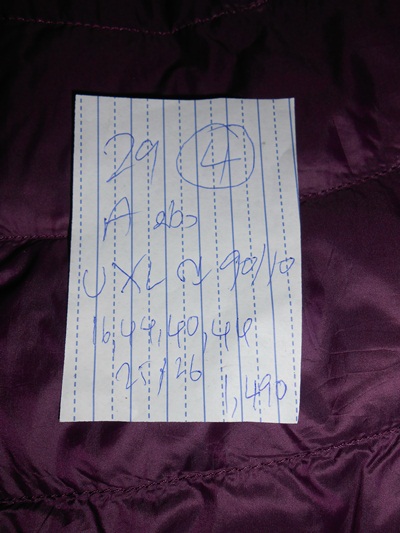 29 4
A
U XL 90/10
16,44,40,44
25/26
1,490